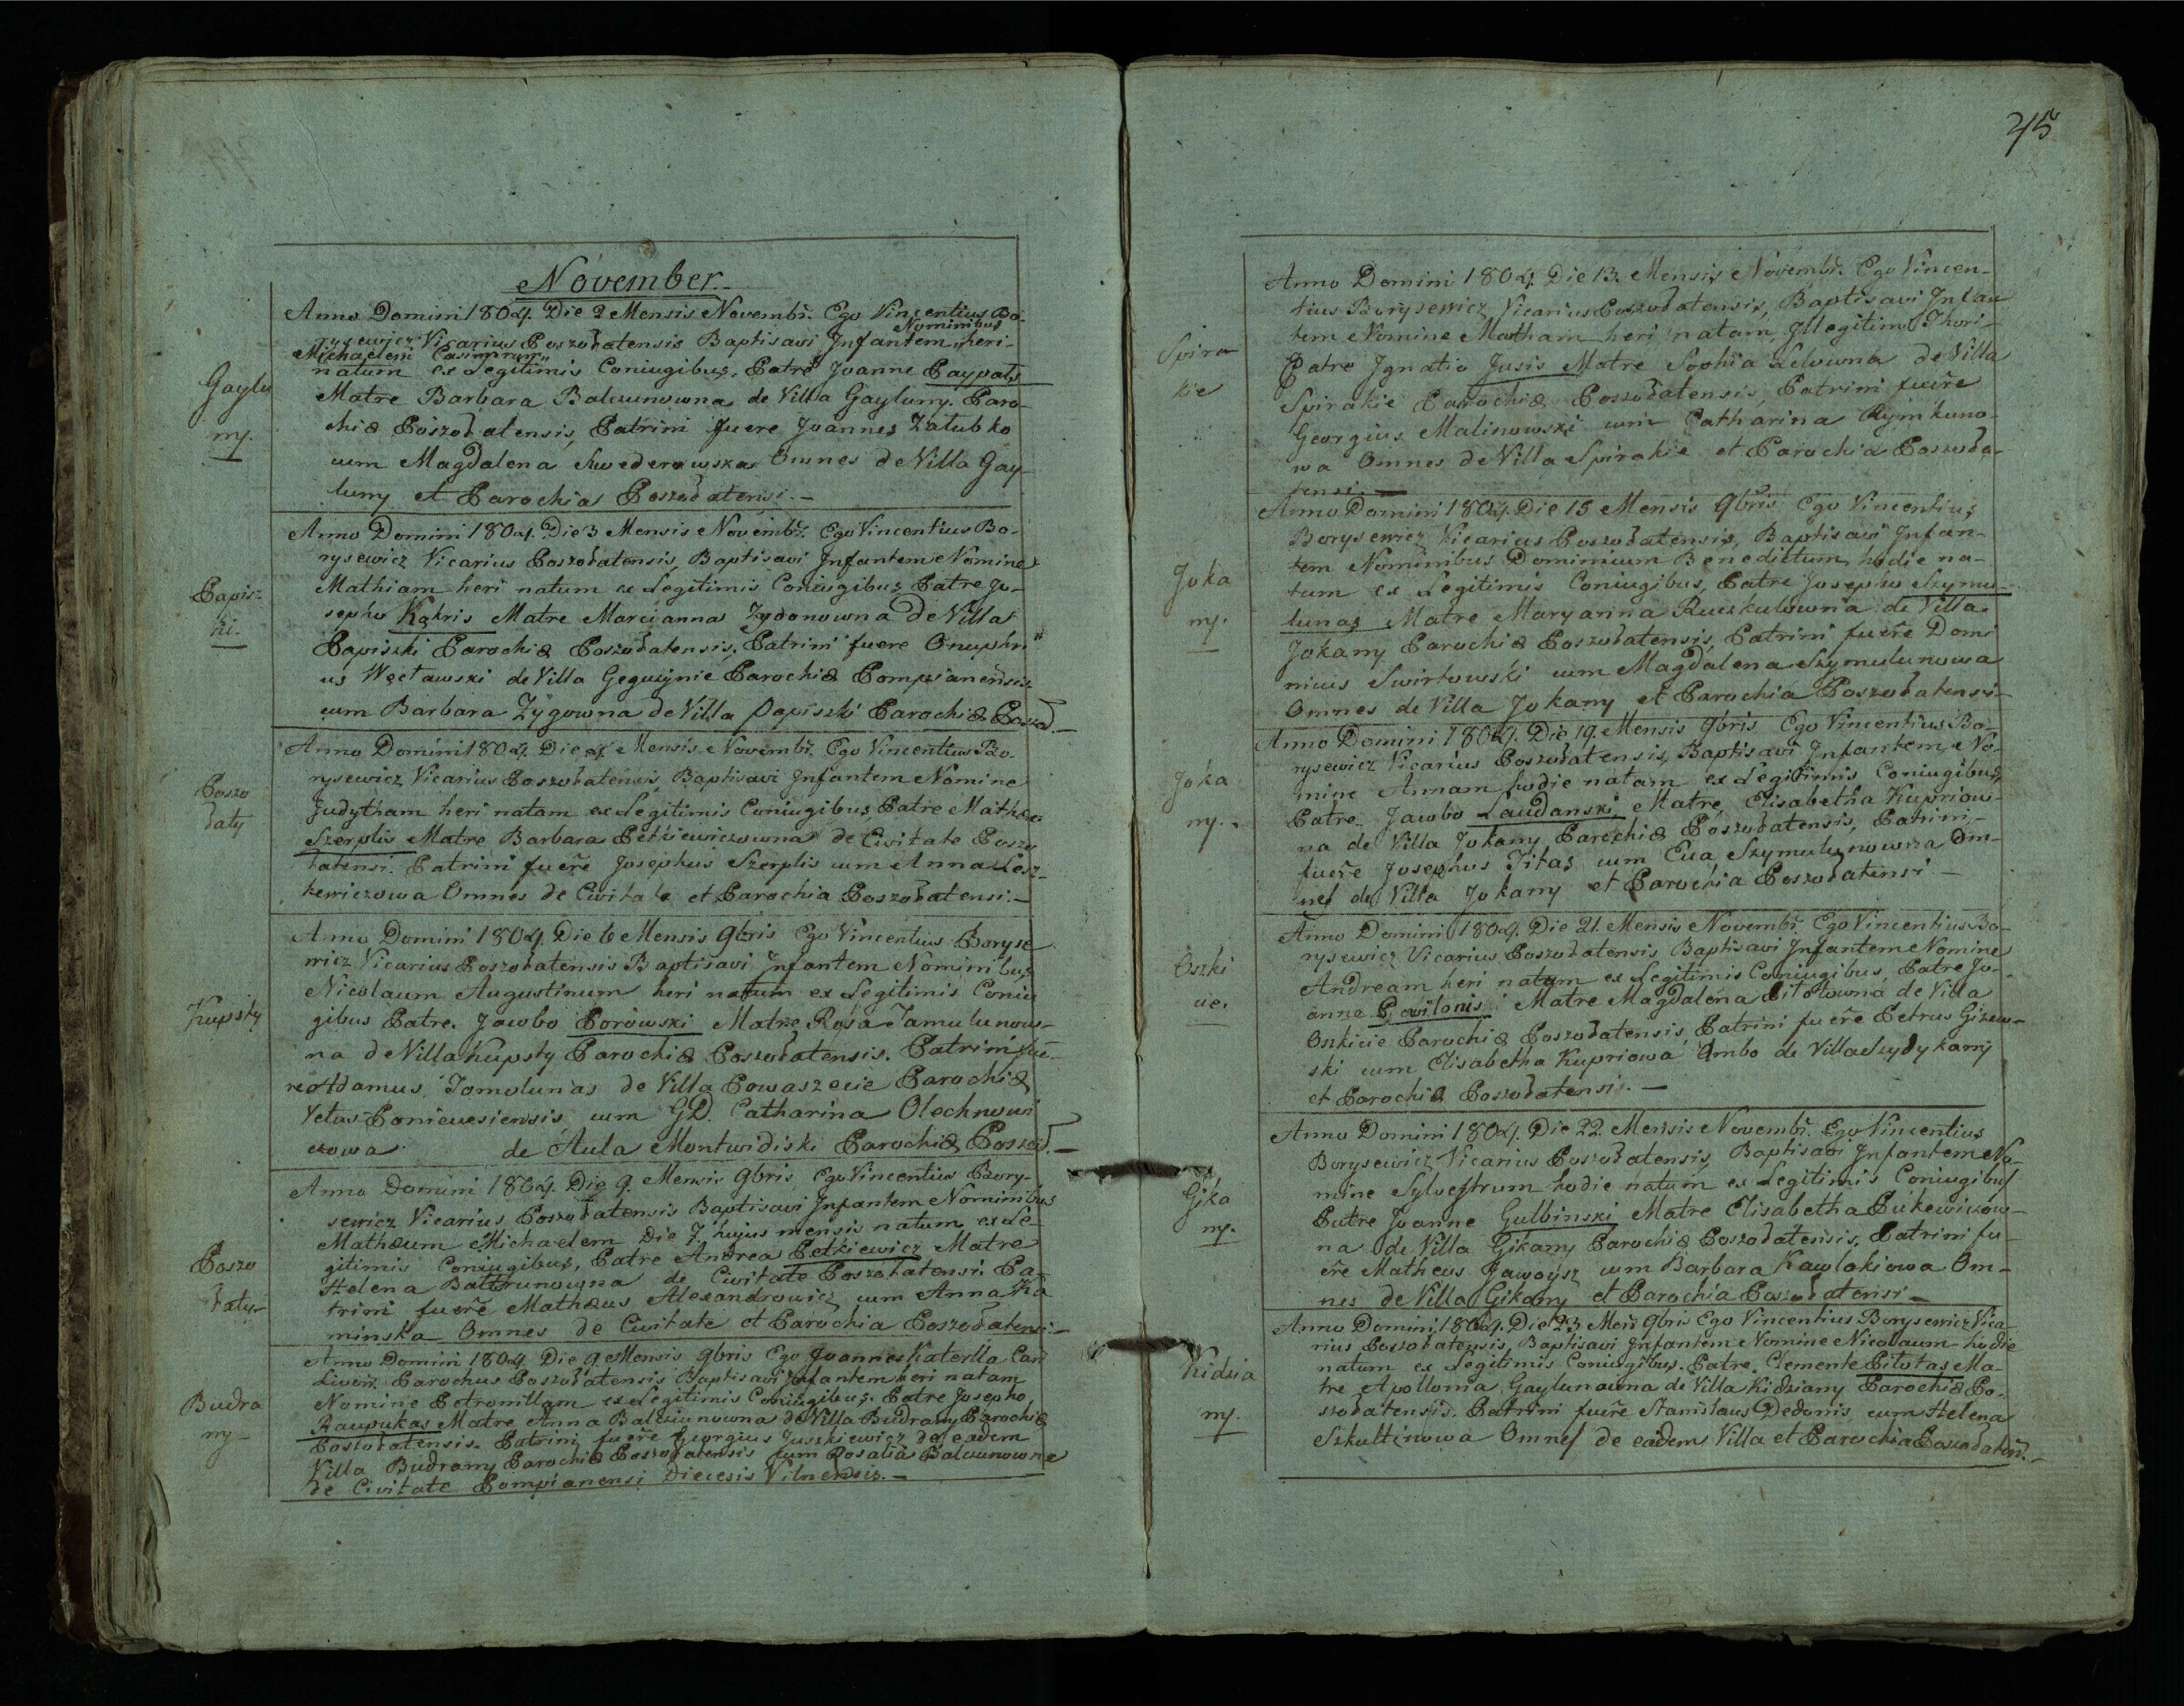 November
Anno Domini 1804. Die 2 Mensis Novembr. Ego Vincentius Bo-
rysewicz Vicarius Poszołatensis Baptisavi Infantem Nominibus heri
Michaelem Casimirum
natum ex Legitimis Coniugibus, Patre Joanne Paypals
Gayłu
ny.
Matre Barbara Balczunowna de Villa Gayluny. Paro-
chiæ Poszołatensis, Patrini fuere Joannes Załubko
cum Magdalena Szwederowska Omnes de Villa Gay-
luny et Parochia Poszołatensi.-
Anno Domini 1804. Die 3 Mensis Novembr. Ego Vincentius Bo-
rysewicz Vicarius Poszołatensis, Baptisavi Infantem Nomine
Papisz-
ki.
Mathiam heri natum ex Legitimis Coniugibus Patre Jo-
sepho Katris Matre Marcianna Zydonowna de Villa
Papiszki Parochiæ Poszołatensis, Patrini fuere Onuphri
us Węcławski de Villa Gegużynie Parochiæ Pompianensis
cum Barbara Zygowna de Villa Papiszki Parochiæ Poszoł.-
Anno Domini 1804. Die 4 Mensis Novembr. Ego Vincentius Bo-
rysewicz Vicarius Poszołatensis, Baptisavi Infantem Nomine
Poszo
łaty
Judytham heri natam ex Legitimis Coniugibus Patre Matheo
Szerplis Matre Barbara Petkiewiczowna de Civitate Poszo
łatensi. Patrini fuere Josephus Szerplis cum Anna Lesz-
kewiczowa Omnes de Civitate et Parochia Poszołatensi.-
Anno Domini 1804. Die 6 Mensis 9bris Ego Vincentius Boryse
wicz Vicarius Poszołatensis Baptisavi Infantem Nominibus
Kupsty
Nicolaum Augustinum heri natum ex Legitimis Coniu
gibus Patre. Jacobo Porowski Matre Rosa Jamulunow-
na de Villa Kupsty Parochiæ Poszołatensis. Patrini fue-
re Adamus Jomolunas de Villa Powaszecie Parochiæ
Vetus-Ponieuesiensis, cum GD. Catharina Olechnowi
czowa de Aula Montwidiszki Parochiæ Poszoł.-
Anno Domini 1804. Die 9. Mensis 9bris, Ego Vincentius Bory-
sewicz Vicarius Poszołatensis Baptisavi Infantem Nominibus
Mathæum Michaelem Die 7. hujus mensis natum ex Le-
Poszo
łaty-
gitimis Coniugibus, Patre Andrea Petkiewicz Matre
Helena Battrunowna de Civitate Poszołatensi. Pa-
trini fuere Mathæus Alexandrowicz cum Anna Ka
minska Omnes de Civitate et Parochia Poszołatensi.-
Anno Domini 1804 Die 9 Mensis 9bris Ego Joannes Katerlla Can
Livon. Parochus Poszołatensis Baptisavi Infantem heri natam
Budra
ny-
Nomine Petronillam ex Legitimis Coniugibus. Patre Josepho
Raupukas Matre Anna Balciunowna de Villa Budrany Parochiæ
Poszołatensis. Patrini fuere Georgius Juszkiewicz de eadem
Villa Budrany Parochiæ Poszołatensis cum Rosalia Balczunowna
de Civitate Pompianensi Diecesis Vilnensis.-
45
Anno Domini 1804. Die 13. Mensis Novembr. Ego Vincen-
tius Borysewicz Vicarius Poszołatensis, Baptisavi Infan
Spira
kie
tem Nomine Martham heri natam, Illegitimi Thori-
Patre Ignatio Jusis Matre Sophia Lelowna de Villa
Spirakie Parochiæ Poszołatensis, Patrini fuere
Georgius Malinowski cum Catharina Rymkuno-
wa Omnes de Villa Spirakie et Parochia Poszoła-
tensi.-
Anno Domini 1804. Die 15 Mensis 9bris Ego Vincentius
Borysewicz Vicarius Poszołatensis, Baptisavi Infan-
Joka
ny.
tem Nominibus Dominium Benedictum hodie na-
tum ex Legitimis Coniugibus, Patre Josepho Szymu-
lunas Matre Maryanna Ruczkulowna de Villa
Jokany Parochiæ Poszołatensis, Patrini fuere Domi
nicus Swirtowski cum Magdalena Szymulunowa
Omnes de Villa Jokany et Parochia Poszołatensi-
Anno Domini 1804. Die 19. Mensis 9bris Ego Vincentius Bo-
rysewicz Vicarius Poszołatensis, Baptisavi Infantem No-
Joka
ny.
mine Annam hodie natam ex Legitimis Coniugibus,
Patre Jacobo Laudanski Matre Elisabetha Kupriow-
na de Villa Jokany Parochiæ Poszołatensis, Patrini
fuere Josephus Titas cum Eva Szymulunowna Om-
nes de Villa Jokany et Parochia Poszołatensi.-
Anno Domini 1804. Die 21. Mensis Novembr. Ego Vincentius Bo-
rysewicz Vicarius Poszołatensis Baptisavi Infantem Nomine
Oszki
cie.
Andream heri natum ex Legitimis Coniugibus, Patre Jo-
anne Powilonis Matre Magdalena Pitołowna de Villa
Oszkicie Parochiæ Poszołatensis, Patrini fuere Petrus Gizew-
ski cum Elisabetha Kupriowa Ambo de Villa Szydykany
et Parochiæ Poszołatensis.-
Anno Domini 1804. Die 22. Mensis Novembr. Ego Vincentius
Borysewicz Vicarius Poszołatensis, Baptisavi Infantem No-
Gika
ny.
mine Sylvestrum hodie natum ex Legitimis Coniugibus
Patre Joanne Gulbinski Matre Elisabetha Pukewiczow-
na de Villa Gikany Parochiæ Poszołatensis, Patrini fu-
ere Matheus Jawoysz cum Barbara Kawlokiowa Om-
nes de Villa Gikany et Parochia Poszołatensi-
Anno Domini, 1804. Die 23 Mens 9bris Ego Vincentius Borysewicz Vica-
rius Poszołatensis, Baptisavi Infantem Nomine Nicolaum hodie
Kidzia
ny.
natum ex Legitimis Coniugibus. Patre. Clemente Pitołas Ma-
tre Apollonia Gaylunowna de Villa Kidziany Parochiæ Po-
szołatensis. Patrini fuere Stanislaus Dedonis, cum Helena
Szkultinowa Omnes de eadem Villa et Parochia Poszołatens.-